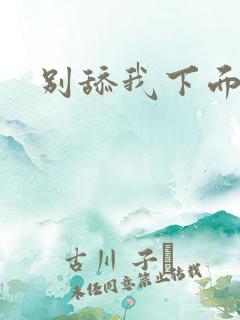 别舔我下面
古川 子
未经同意禁止转载